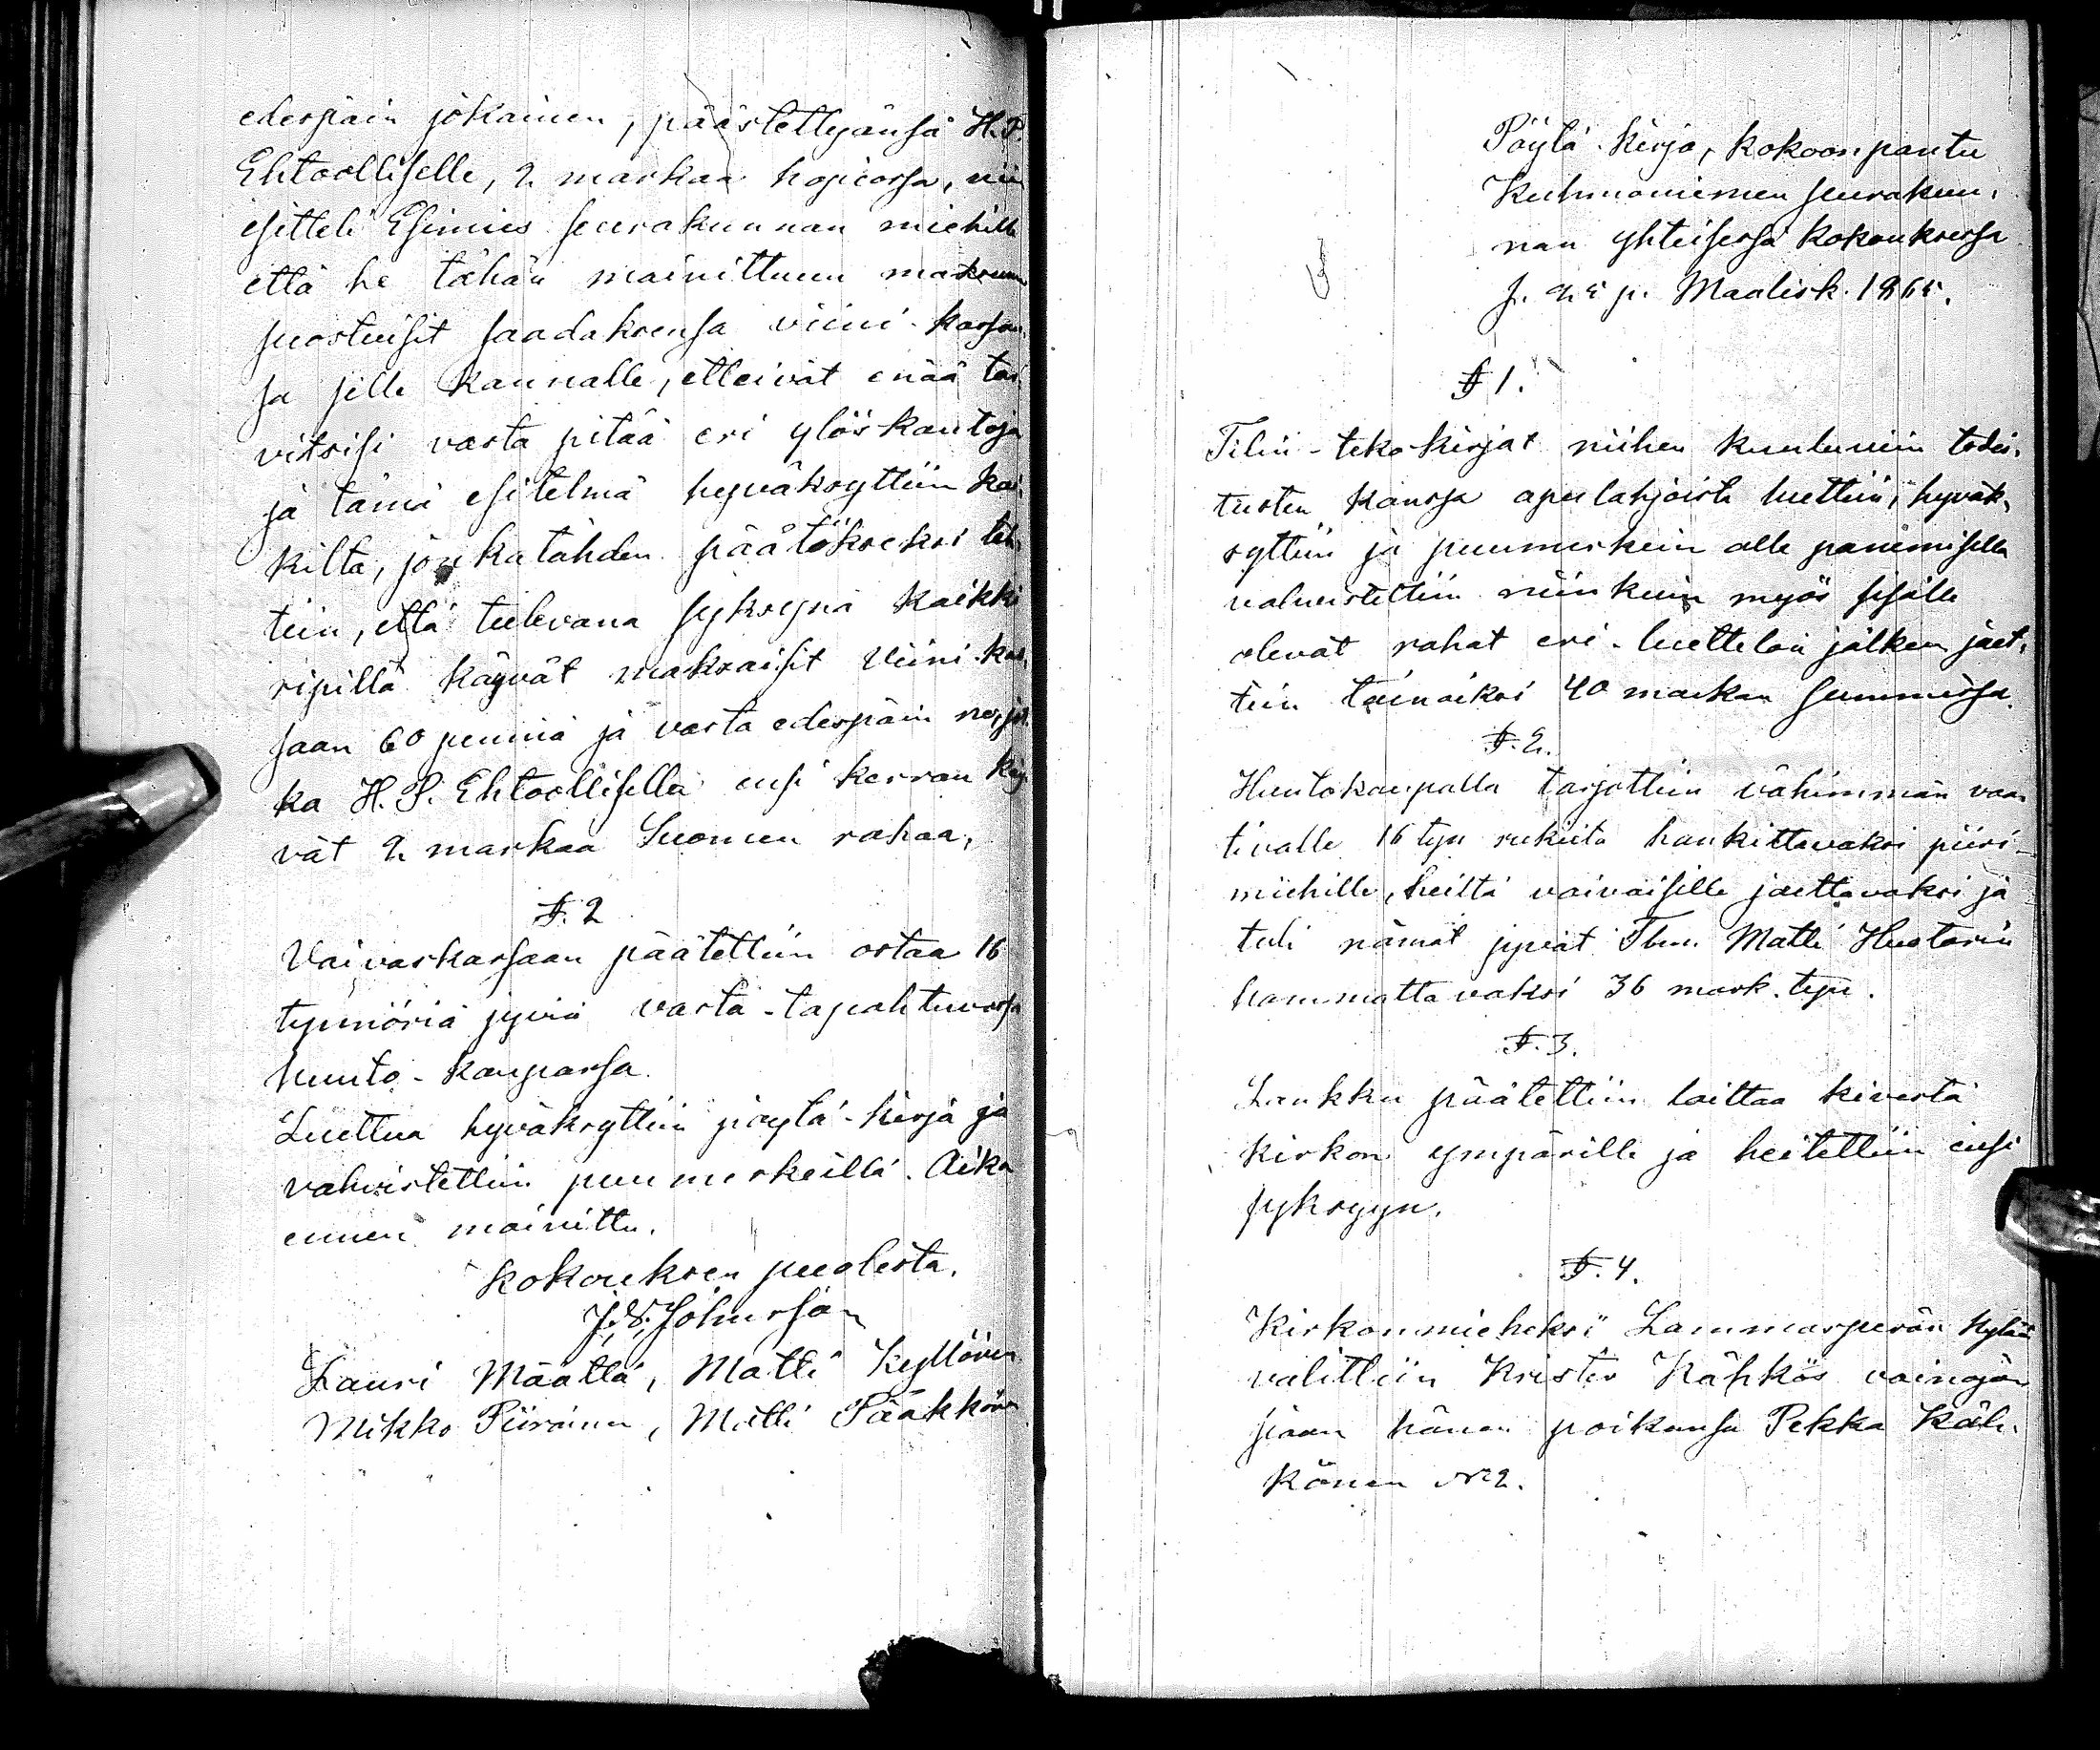 ederpäin jokainen, päästettyänsä H.P.
Ehtoolliselle, 2 markaa hopiassa, niin
esitteli Esimies seurakunnan miehille
että he tähän mainittuun maksuun
suostuisit saadaksensa viini-kassan
sa sille kannalle, etteivät enää tar-
vitsisi vasta pitää eri ylöskantoja
ja tämä esitelmä hyväksyttiin kai-
kilta, jonkatähden päätökseksi teh-
tiin, että tulevana syksynä kaikki
ripillä käyvät maksaisit Viini-kas-
saan 60 penniä ja vasta ederpäin ne, jot-
ka H. P. Ehtoollisella ensi kerran käy-
vät 2 markaa Suomen rahaa,
§. 2
Vaivaskassaan päätettiin ostaa 16
tynnöriä jyviä vasta-tapahtuvassa
huuto-kaupassa.
Luettua hyväksyttiin pöytä-kirja ja
vahvistettiin puumerkeillä. Aika
ennen mainittu.
Kokouksen puolesta.
J. V. Johnsson
Lauri Määttä, Matti Kyllönen
Mikko Piirainen, Matti Pääkkönen
Pöytä-kirja, kokoonpantu
Kuhmoniemen seurakun-
nan yhteisessä kokouksessa
s. 25 p. Maalisk. 1865.
§ 1.
Tilin-teko-kirjat niihen kuuluviin todis-
tusten kanssa apulahjoista luettiin, hyväk-
syttiin ja puumerkein alle panemisella
vahvistettiin niinkuin myös sisälle
olevat rahat eri-luettelon jälkeen jaet-
tiin lainaiksi 40 markan summissa.
§. 2.
Huutokaupalla tarjottiin vähimmän vaa-
tivalle 16 tyn rukiita hankittavaksi piiri-
miehille, heiltä vaivaisille jaettavaksi ja
tuli nämät jyvät Thm. Matti Huotarin
hammattavaksi 36 mark. tyn.
§. 3.
Laukku päätettiin laittaa kivestä
kirkon ympärille ja heitettiin ensi
syksyyn.
§. 4.
Kirkonmieheksi Lammasperän kylään
valittiin Krister Kähkös vainajan
siaan hänen poikansa Pekka Käh-
könen No 2.